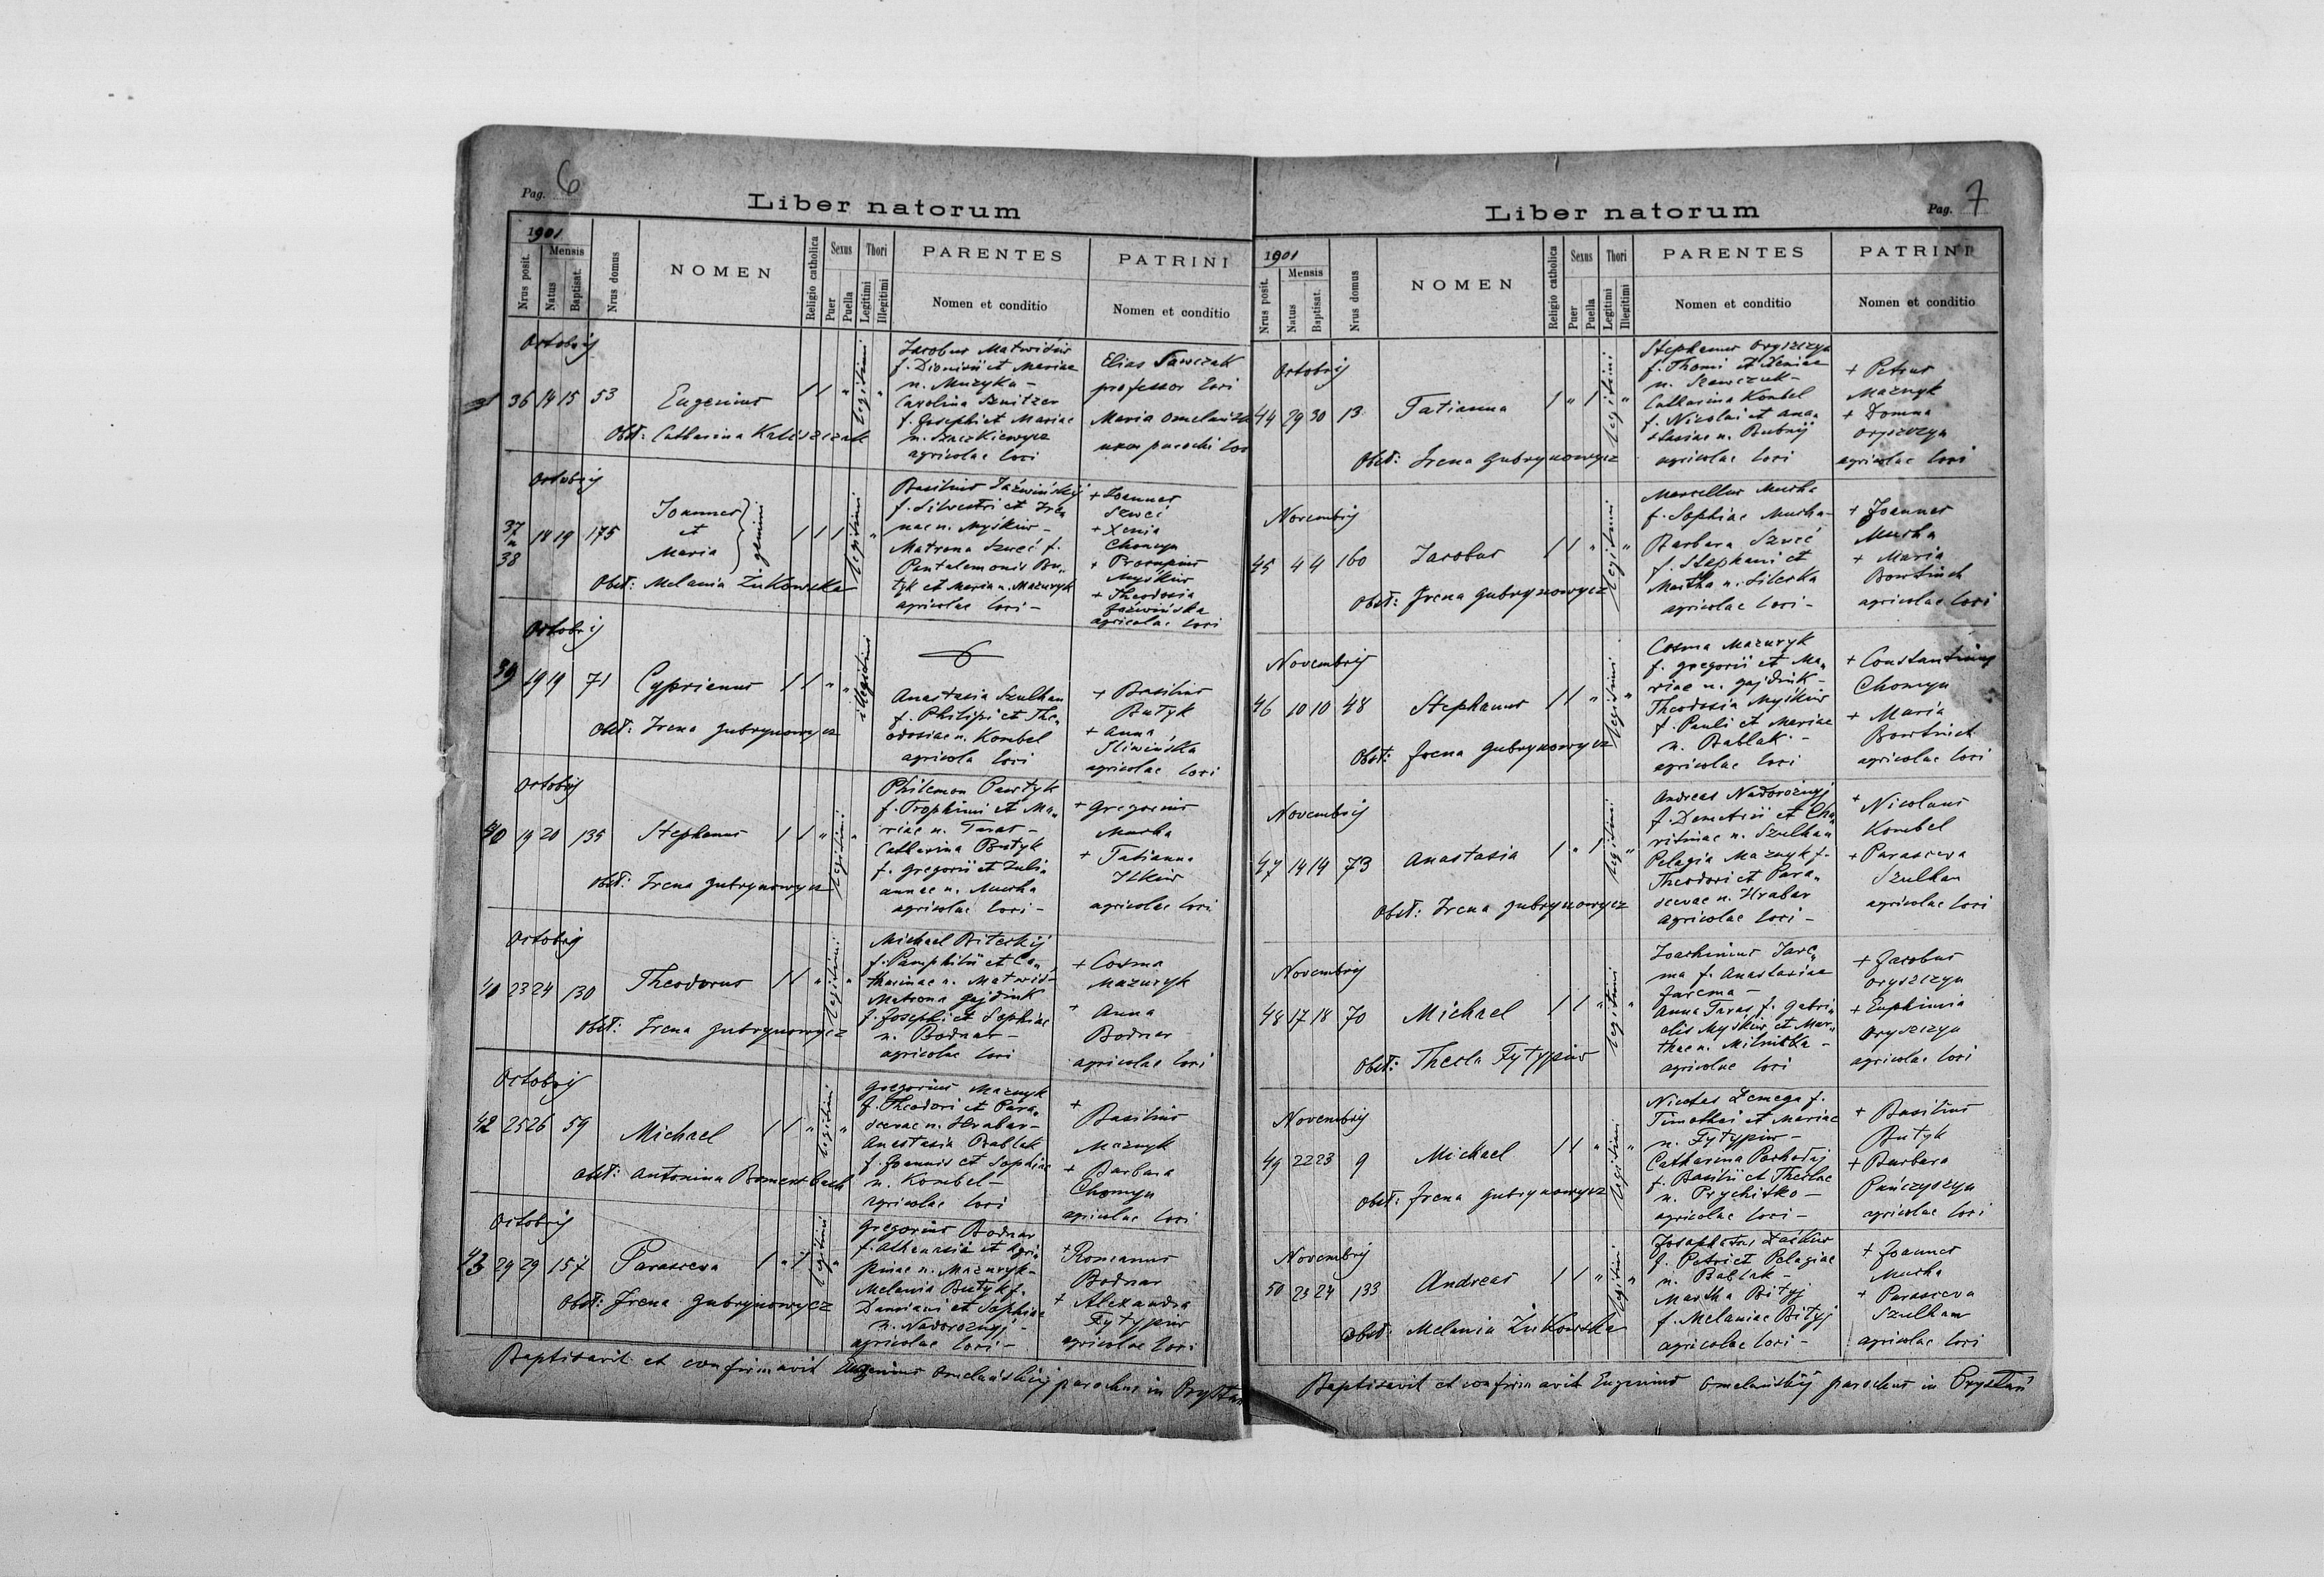 Pag. 6
Liber natorum
1901
Mensis
Nrus posit.
Natus
Baptisat.
Nrus domus
NOMEN
Religio catholica
Sexus
Puer
Puella
Thori
Legitimi
Illegitimi
PARENTES
Nomen et conditio
PATRINI
Nomen et conditio
Octobrij
36 14 15 53 Eugenius
legitimi
Obst: Catharina Kaliszczak
Jacobus Matwiów
f. Dionisii et Mariae
n. Muzyka -
Carolina Sznitzer
f. Josephi et Mariae
n.
agricolae loci
Elias Sawczak
professor loci
Maria
uxor parochi loci
Octobrij
37 n 38 18 19 175
Joannes
et
Maria
gemini
legitimi
Obst: Melania Żukowska
Basilius Jaźwińskij
f. Silvestri et Ire„
nae n. Myśków -
Matrona Szweć f.
Pantalemonis Bu„
tyk et Maria n. Mazuryk
agricolae loci -
+ Joannes
Szweć
+ Xenia
Chomyn
+ Procopius
Myśków
+ Theodosia
Jaźwińska
agricolae loci
Octobrij
39 19 19 71 Cyprianus
illegitimi
Obst: Irena Gubrynowycz
Anastasia Szulhan
f. Philipi et The„
odosiae n. Kombel
agricola loci
+ Basilius
Butyk
+ Anna
Sliwińska
agricolae loci
Octobrij
40 19 20 135 Stephanus
legitimi
Obst: Irena Gubrynowycz
Philemon Pawtyk
f. Trophimi et Ma„
riae n. Taras -
Catharina Butyk
f. Gregorii et Juli„
annae n. Mucha
agricolae loci -
+ Gregorius
Mucha
+ Tatianna
Ilków
agricolae loci
Octobrij
40 23 24 130 Theodorus
legitimi
Obst: Irena Gubrynowycz
Michael Bileckij
f. Pamphilii et Ca„
tharinae n. Matwiów
Matrona Gajdiuk
f. Josephi et Sophiae
n. Bodnar -
agricolae loci
+ Cosma
Mazuryk
+ Anna
Bodnar
agricolae loci
Octobrij
42 25 26 59 Michael
legitimi
Obst: Antonina
Gregorius Mazuryk
f. Theodori et Para„
scevae n. Hrabar -
Anastasia Bablak
f. Joannis et Sophiae
n. Kombel -
agricolae loci
+ Basilius
Mazuryk
+ Barbara
Chomyn
agricolae loci
Octobrij
43 29 29 157 Parasceva
legitimi
Obst: Irena Gubrynowycz
Gregorius Bodnar
f. Athenasii et Agri„
pinae n. Mazuryk -
Melania Butyk f.
Damiani et Sophiae
n. Nadorożnyj -
agricolae loci -
+ Romanus
Bodnar
+ Alexandra
Fytypiw
agricolae loci
Baptisavit et confirmavit Eugenius Omelańskij parochus in
Pag. 7
Liber natorum
1901
Mensis
Nrus posit.
Natus
Baptisat.
Nrus domus
NOMEN
Religio catholica
Sexus
Puer
Puella
Thori
Legitimi
Illegitimi
PARENTES
Nomen et conditio
PATRINI
Nomen et conditio
Octobrij
44 29 30 13 Tatianna
legitimi
Obst: Irena Gubrynowycz
Stephanus Oryszczyn
f. Thomi et Xeniae
n. Sawczuk -
Catharina Kombel
f. Nicolai et Ana„
stasiae n. Bubnij
agricolae loci
+ Petrus
Mazuryk
+ Domna
Oryszczyn
agricolae loci
Novembrij
45 4 4 160 Jacobus
legitimi
Obst: Irena Gubrynowycz
Marcellus Mucha
f. Sophiae Mucha -
Barbara Szweć
f. Stephani et
Martha n. Silecka
agricolae loci -
+ Joannes
Mucha
+ Maria
Bowtinch
agricolae loci
Novembrij
46 10 10 48 Stephanus
legitimi
Obst: Irena Gubrynowycz
Cosma Mazuryk
f. Gregorii et Ma„
riae n. Gajdiuk -
Theodosia Myśków
f. Pauli et Mariae
n. Bablak -
agricolae loci
+ Constantinus
Chomyn
+ Maria
Bowtinch
agricolae loci
Novembrij
47 14 14 73 Anastasia
legitimi
Obst: Irena Gubrynowycz
Andreas Nadorożnyj
f. Demetrii et Cha„
ritinae n. Szulhan
Pelagia Mazuryk f.
Theodori et Para„
scevae n. Hrabar
agricolae loci -
+ Nicolaus
Kombel
+ Parasceva
Szulhan
agricolae loci
Novembrij
48 17 18 70 Michael
legitimi
Obst: Thecla Fytypiw
Joachimus Jare„
ma f. Anastasiae
Jarema -
Anna Taras f. Gabri„
elis Myśków et Mar„
thae n. Milnicka -
agricolae loci
+ Jacobus
Oryszczyn
+ Euphimia
Oryszczyn
agricolae loci
Novembrij
49 22 23 9 Michael
legitimi
Obst: Irena Gubrynowycz
Nicetas Dzmega f.
Timothei et Mariae
n. Fytypiw -
Catharina Pochodaj
f. Basilii et Theclae
n. Prychitko -
agricolae loci -
+ Basilius
Butyk
+ Barbara
Pańczyszyn
agricolae loci
Novembrij
50 23 24 133 Andreas
legitimi
Obst: Melania Żukowska
Josaphatus
f. Petri et Pelagiae
n. Bablak -
Martha Bityj
f. Melaniae Bityj
agricolae loci -
+ Joannes
Mucha
+ Parasceva
Szulhan
agricolae loci
Baptisavit et confirmavit Eugenius Omelańskij parochus in